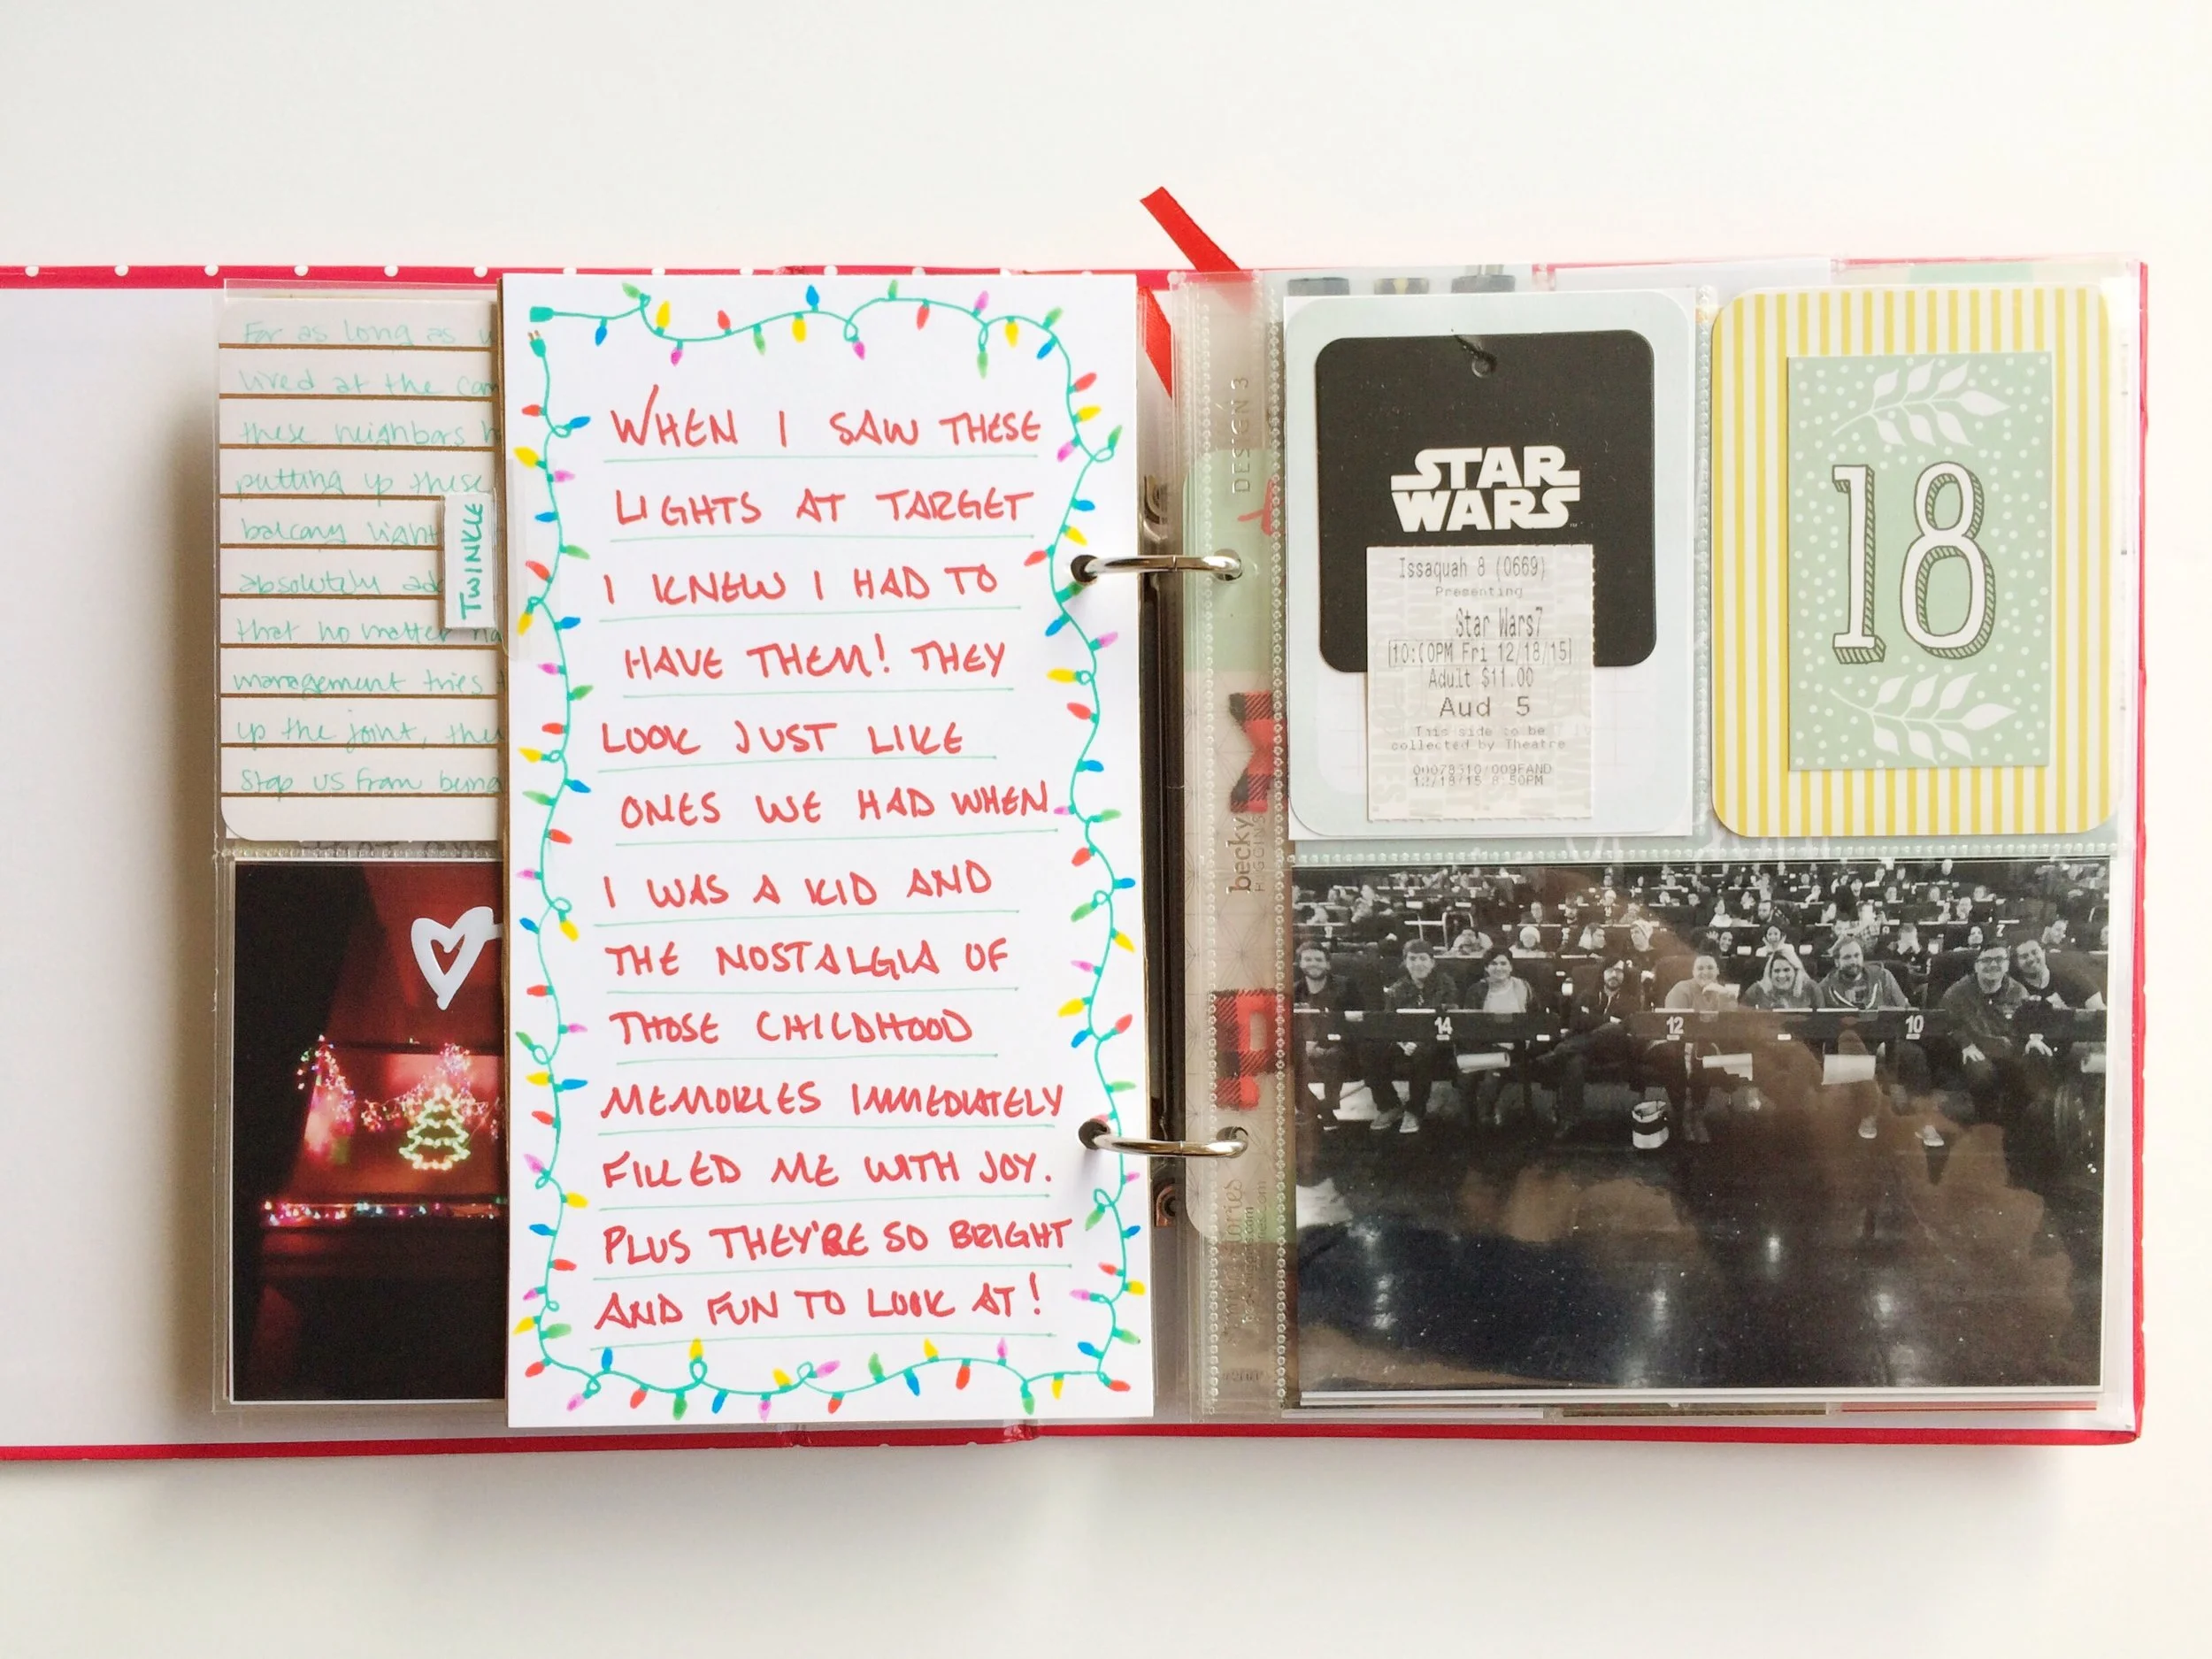 For as long as
lived at the
these neighbors
putting up these
balcony
absolutely
that no matter
management tries
up the joint,
stop us from being
TWINKLE
WHEN I SAW THESE
LIGHTS AT TARGET
I KNEW I HAD TO
HAVE THEM! THEY
LOOK JUST LIKE
ONES WE HAD WHEN
I WAS A KID AND
THE NOSTALGIA OF
THOSE CHILDHOOD
MEMORIES IMMEDIATELY
FILLED ME WITH JOY.
PLUS THEY'RE SO BRIGHT
AND FUN TO LOOK AT!
DESIGN 3
becky
HIGGINS
STAR
WARS
Issaquah 8 (0669)
Presenting
Star Wars7
10:00PM Fri 12/18/15
Adult $11.00
Aud 5
This side to be
collected by Theatre
12/18/15 8:50PM
18
14
12
10